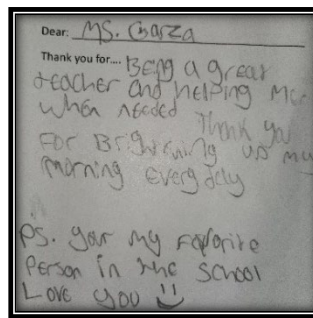 Dear: Ms. Garza
Thank you for.... Being a great
teacher and helping me
when needed Thank you
For Brightning up my
morning every day
Ps. your my Faforite
Person in the School
Love you :)